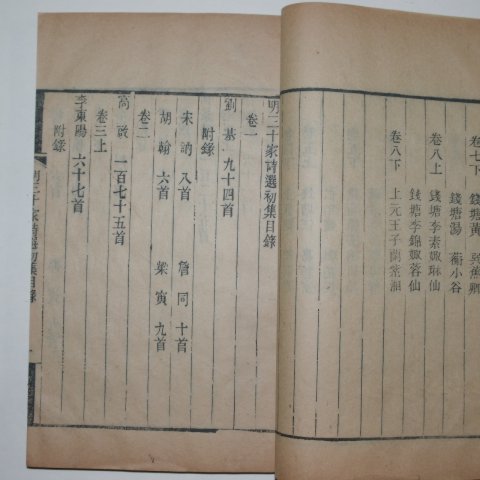 卷七下
錢塘黃 巽魚卿
錢塘湯 蘅小谷
卷八上
錢塘李素娵琳仙
錢塘李錦娵蓉仙
卷八下
上元王子蘭紫湘
明三十家詩選初集目錄
卷一
劉基 九十四首
附錄
宋訥 八首 詹同 十首
胡翰 六首 梁寅 九首
卷二
高啟 一百七十五首
卷三上
李東陽 六十七首
附錄
明三十家詩選初集目錄